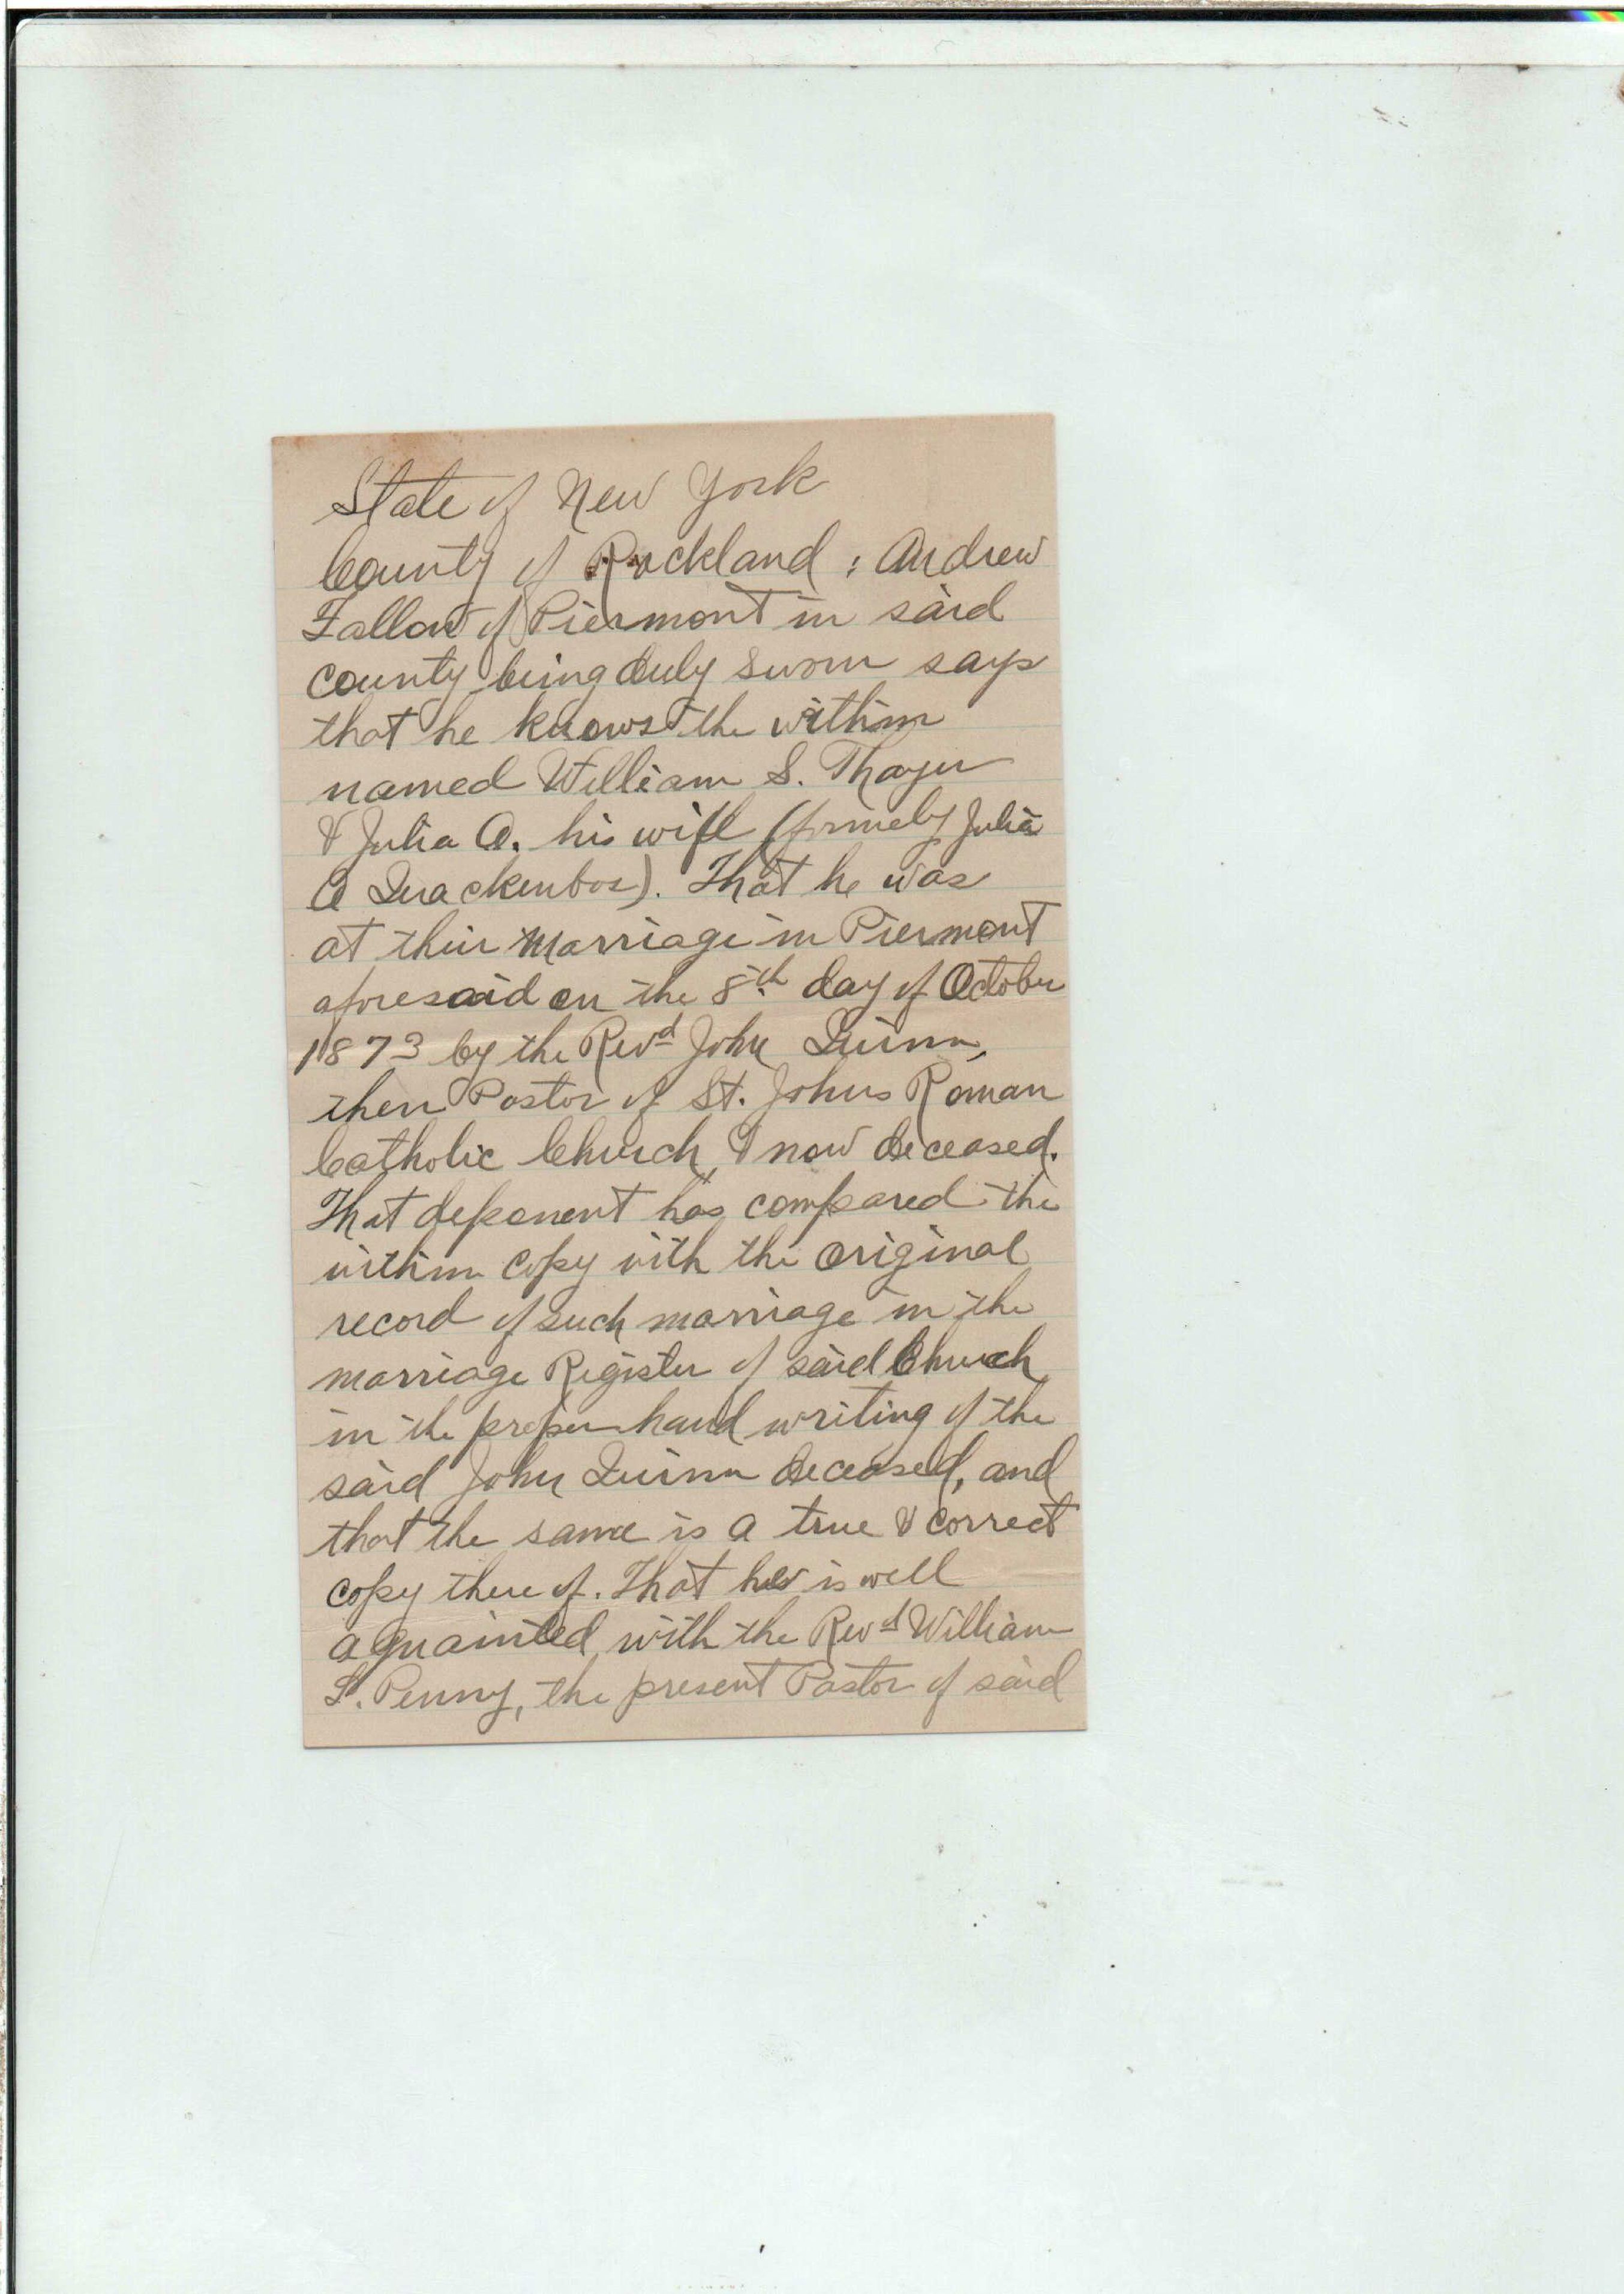 State of New York
County of Rockland : Andrew
Fallon of Piermont in said
county being duly sworn says
that he knows the within
named William S. Thayer
& Julia A. his wife (formely Julia
A Quackenbos). That he was
at their Marriage in Piermont
aforesaid on the 8th day of October
1873 by the Revd John Quinn,
then Pastor of St. Johns Roman
Catholic Church, & now deceased.
That deponent has compared the
within copy with the original
record of such marriage in the
marriage Register of said Church
in the proper hand writing of the
said John Quinn deceased, and
that the same is a true & correct
copy there of. That he is well
aquainted with the Revd William
L. Penny, the present Pastor of said